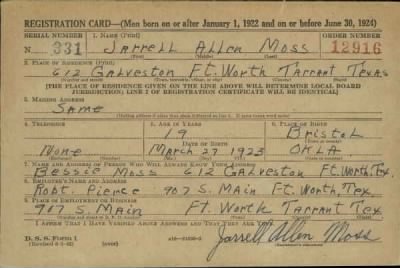 REGISTRATION CARD—(Men born on or after January 1, 1922 and on or before June 30, 1924)
SERIAL NUMBER 1. NAME (Print) ORDER NUMBER
N 331 Jarrell Allen Moss 12916
(First) (Middle) (Last)
2. PLACE OF RESIDENCE (Print)
612 Galveston Ft. Worth Tarrant Texas
[THE PLACE OF RESIDENCE GIVEN ON THE LINE ABOVE WILL DETERMINE LOCAL BOARD
JURISDICTION; LINE 2 OF REGISTRATION CERTIFICATE WILL BE IDENTICAL]
3. MAILING ADDRESS
Same
4. TELEPHONE 5. AGE IN YEARS 6. PLACE OF BIRTH
19 Bristol
DATE OF BIRTH
None March 27 1923 OKLA
7. NAME AND ADDRESS OF PERSON WHO WILL ALWAYS KNOW YOUR ADDRESS
Bessie Moss 612 Galveston Ft. Worth, Tex.
8. EMPLOYER'S NAME AND ADDRESS
Robt. Pierce 907 S. Main Ft. Worth, Tex.
9. PLACE OF EMPLOYMENT OR BUSINESS
907 S. Main Ft. Worth Tarrant Tex
I AFFIRM THAT I HAVE VERIFIED ABOVE ANSWERS AND THAT THEY ARE TRUE.
D. S. S. FORM 1 (over) Jarrell Allen Moss